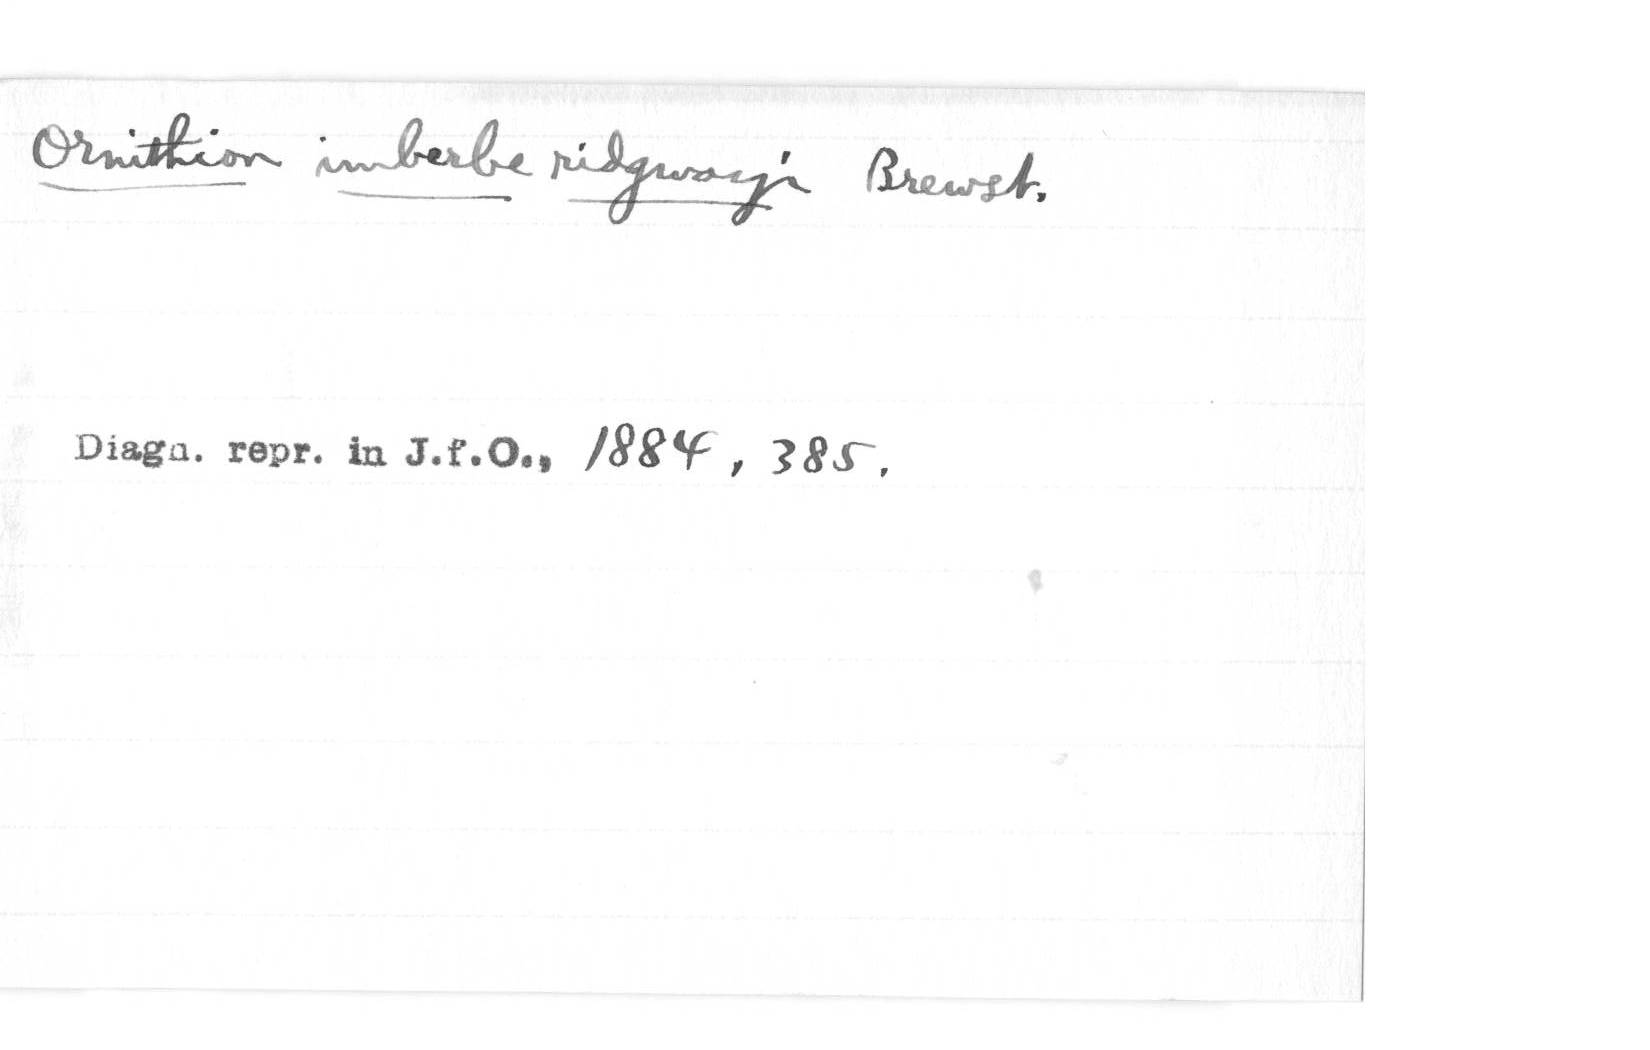 Ornithion imberbe ridgwayi Brewst.
Diagn. repr. in J.f.O., 1884, 385.